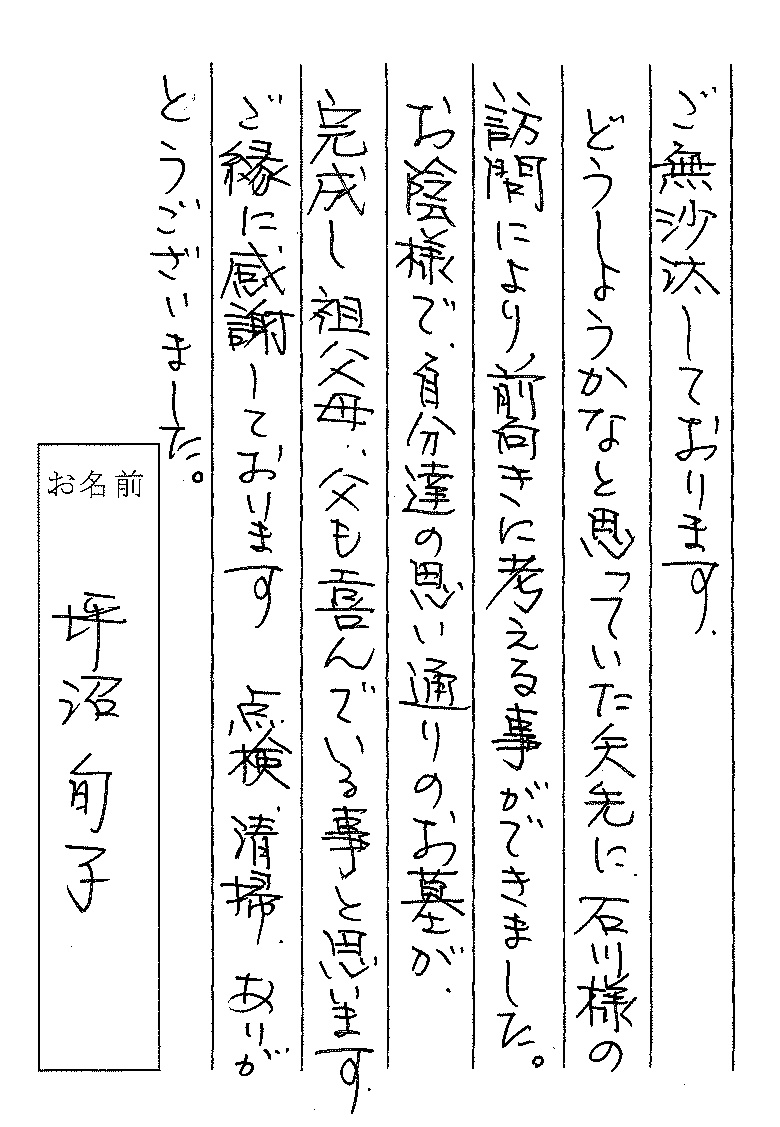 ご無沙汰しております.
どうしようかなと思っていた矢先に、石川様の
訪問により、前向きに考える事ができました。
お陰様で、自分達の思い通りのお墓が、
完成し祖父母、父も喜んでいる事と思います.
ご縁に感謝しております 点検、清掃、ありが
とうございました。
お名前
坪沼 旬子